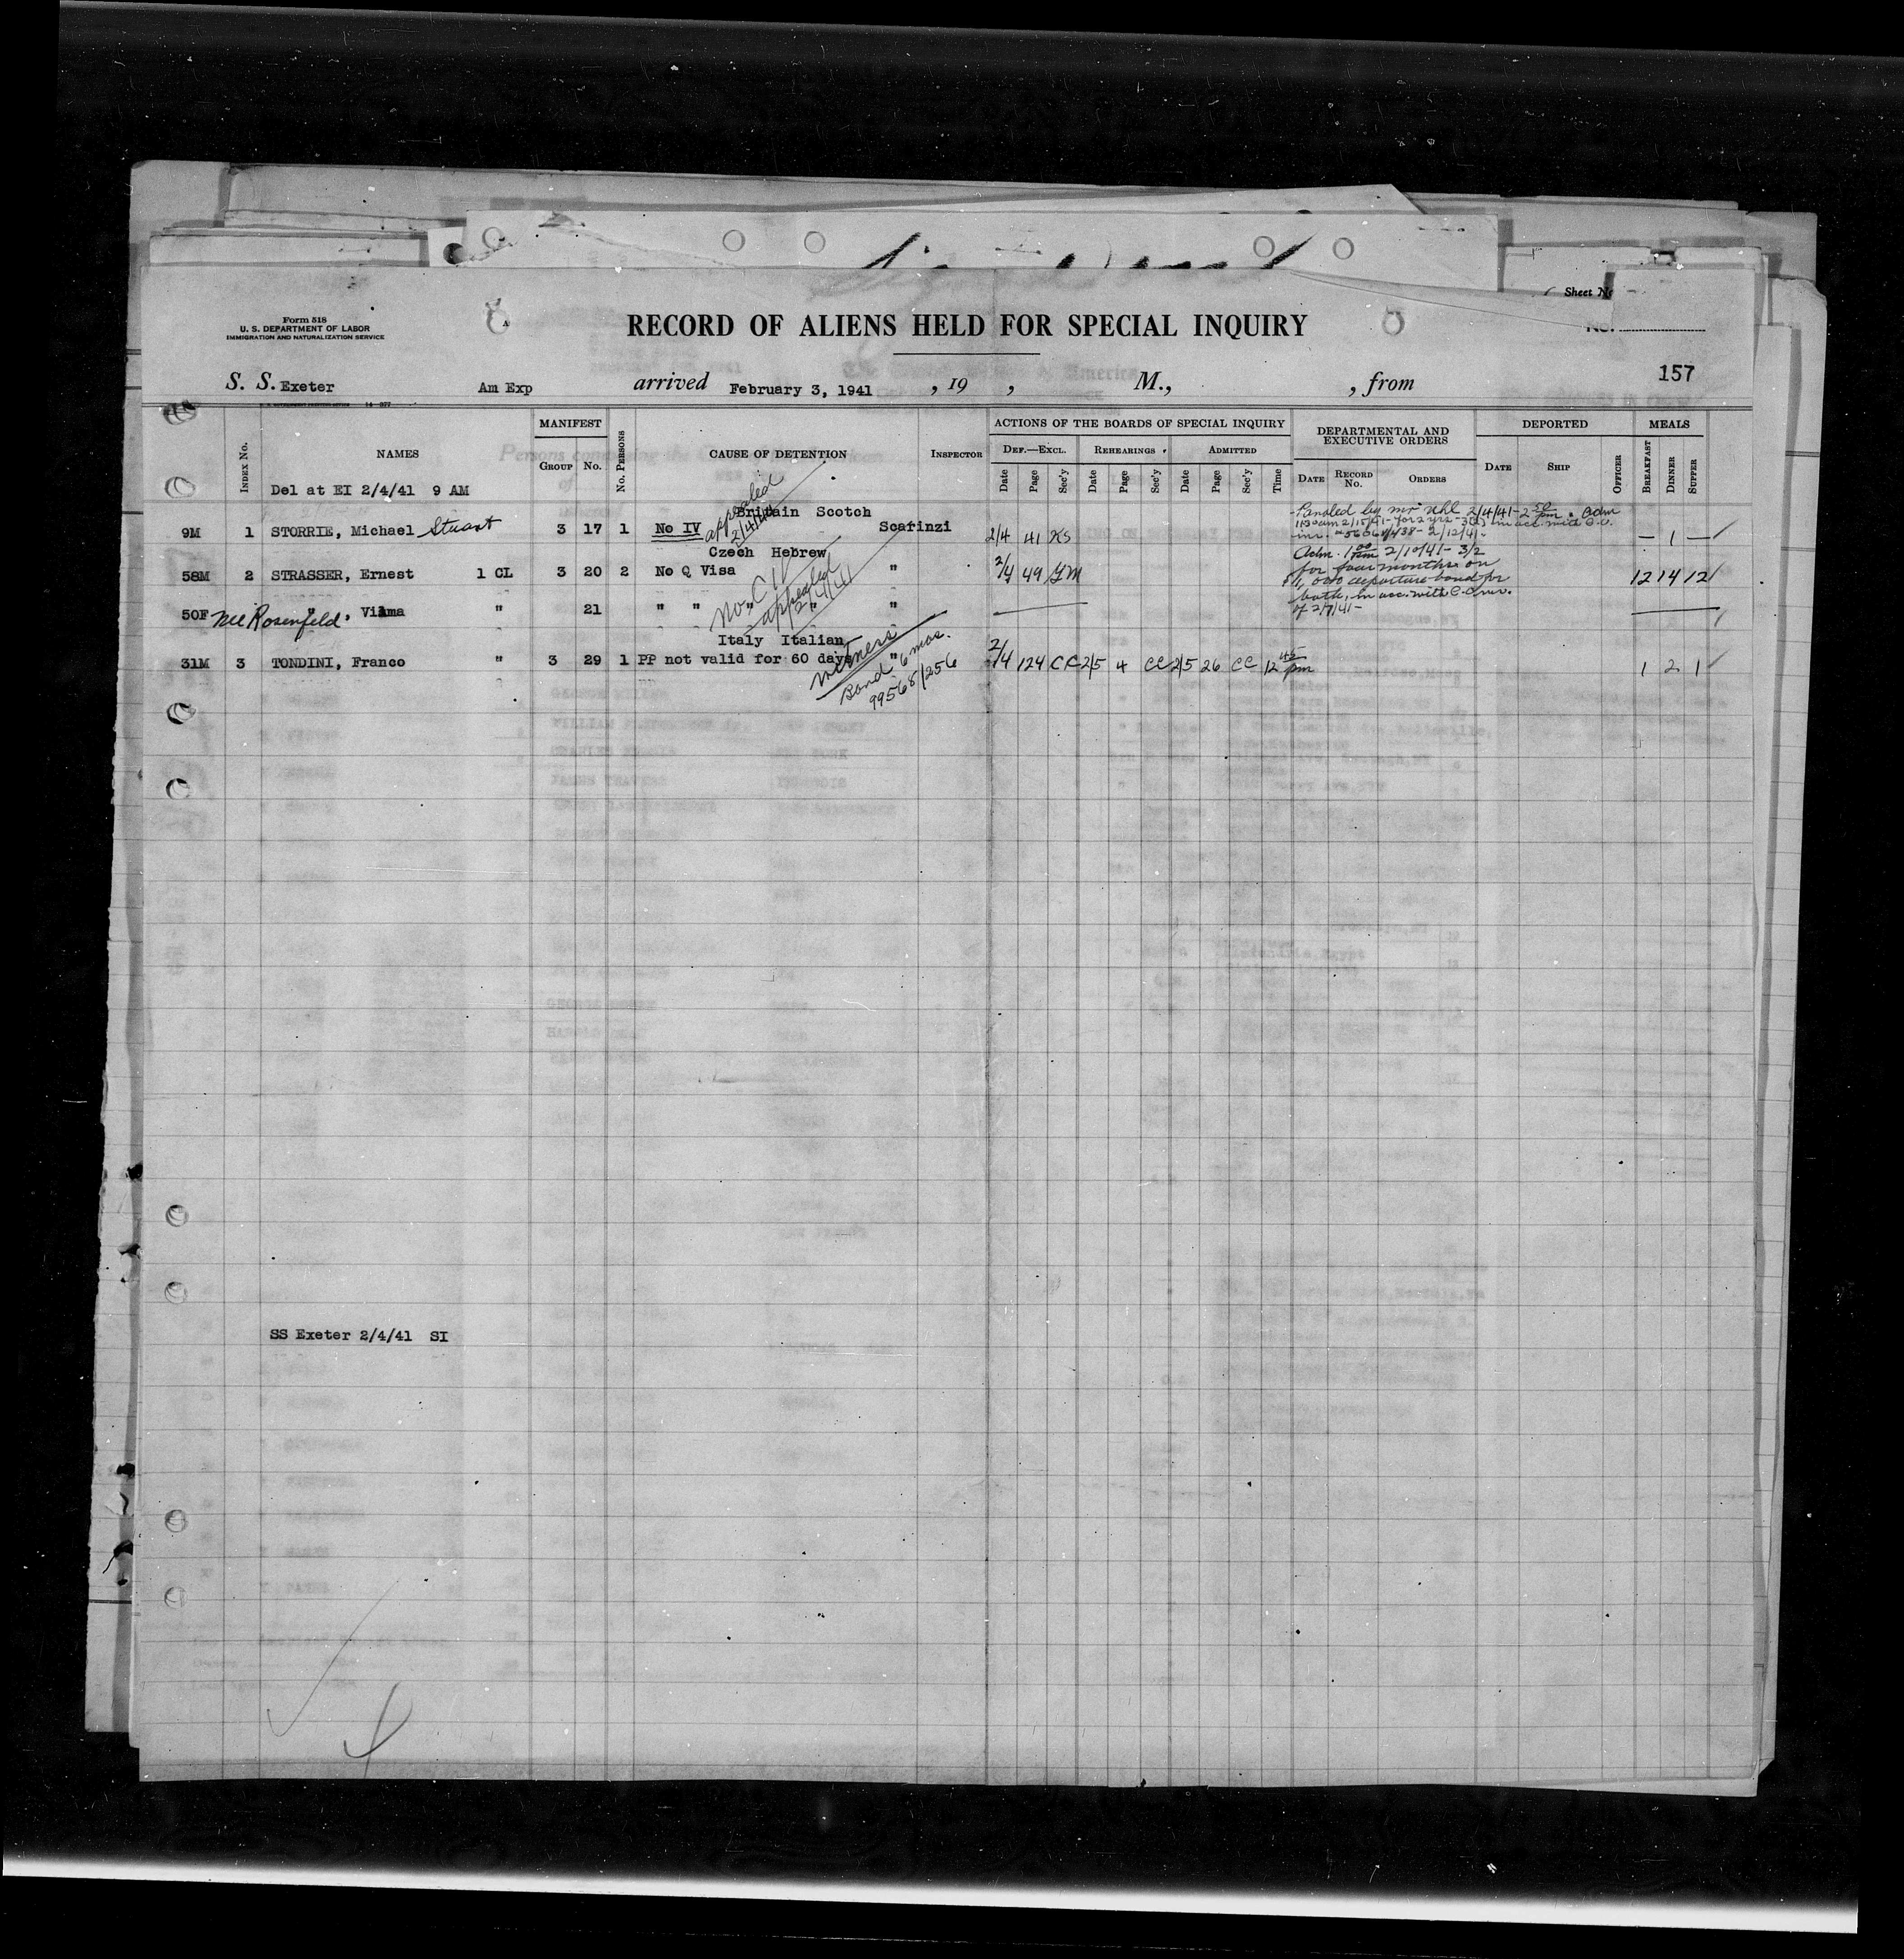 Sheet No
No.
Form 518
U. S. DEPARTMENT OF LABOR
IMMIGRATION AND NATURALIZATION SERVICE
RECORD OF ALIENS HELD FOR SPECIAL INQUIRY
157
S. S. Exeter Am Exp arrived February 3, 1941 , 19 , M., , from
MANIFEST ACTIONS OF THE BOARDS OF SPECIAL INQUIRY DEPARTMENTAL AND EXECUTIVE ORDERS DEPORTED MEALS
Index No. NAMES Group No. No. Persons CAUSE OF DETENTION Inspector Def.—Excl. Rehearings Admitted
Date Page Sec'y Date Page Sec'y Date Page Sec'y Time Date Record No. Orders Date Ship Officer Breakfast Dinner Supper
Del at EI 2/4/41 9 AM
appealed 2/4/41
Britain Scotch
Paroled by Mr Uhl 2/4/41-2 50 pm. Adm
9M 1 STORRIE, Michael Stuart 3 17 1 No IV Scarinzi 2/4 41 KS — 1 —
1130am 2/15/41- for 2 yrs - 3(2) in acc. with C.O.
2/12/41-
Czech Hebrew
Adm. 1 00 pm 2/10/41- 3/2
58M 2 STRASSER, Ernest 1 CL 3 20 2 No Q Visa " 2/4 49 12 14 12
for four months on
$1,000 departure bond for
both, in acc. with C.O.
of 2/7/41-
appealed 2/4/41
50F nee Rosenfeld, Vilma " 21 " " " " "
Italy Italian
31M 3 TONDINI, Franco " 3 29 1 PP not valid for 60 days " 2/4 124 CC 2/5 4 CC 2/5 26 CC 12 45 pm 1 2 1
witness
Bond 6 mos.
99568/256
SS Exeter 2/4/41 SI